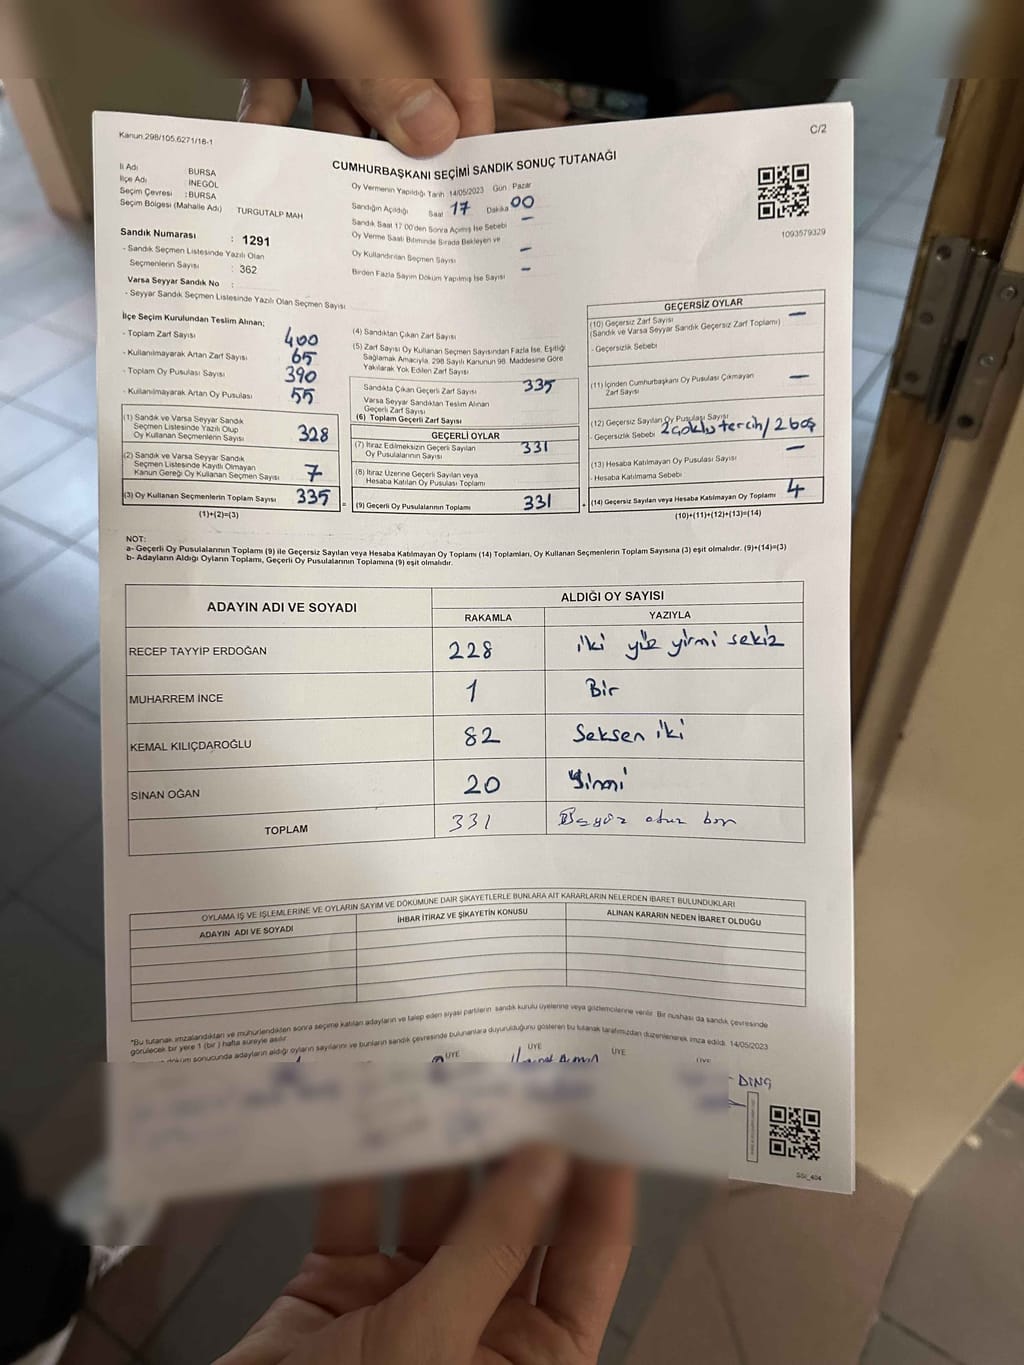 Kanun:298/105.6271/18-1
C/2
CUMHURBAŞKANI SEÇİMİ SANDIK SONUÇ TUTANAĞI
İl Adı : BURSA
İlçe Adı : İNEGÖL
Seçim Çevresi : BURSA
Seçim Bölgesi (Mahalle Adı) TURGUTALP MAH
Oy Vermenin Yapıldığı Tarih 14/05/2023 Gün : Pazar
Sandığın Açıldığı Saat 17 Dakika 00
Sandık Saat 17:00'den Sonra Açılmış İse Sebebi –
Oy Verme Saati Bitiminde Sırada Bekleyen ve
Oy Kullandırılan Seçmen Sayısı –
Birden Fazla Sayım Döküm Yapılmış İse Sayısı –
1093579329
Sandık Numarası : 1291
- Sandık Seçmen Listesinde Yazılı Olan
Seçmenlerin Sayısı : 362
Varsa Seyyar Sandık No :
- Seyyar Sandık Seçmen Listesinde Yazılı Olan Seçmen Sayısı
İlçe Seçim Kurulundan Teslim Alınan;
- Toplam Zarf Sayısı 400
- Kullanılmayarak Artan Zarf Sayısı 65
- Toplam Oy Pusulası Sayısı 390
- Kullanılmayarak Artan Oy Pusulası 55
(1) Sandık ve Varsa Seyyar Sandık
Seçmen Listesinde Yazılı Olup
Oy Kullanan Seçmenlerin Sayısı 328
(2) Sandık ve Varsa Seyyar Sandık
Seçmen Listesinde Kayıtlı Olmayan
Kanun Gereği Oy Kullanan Seçmen Sayısı 7
(3) Oy Kullanan Seçmenlerin Toplam Sayısı 335
(1)+(2)=(3)
(4) Sandıktan Çıkan Zarf Sayısı
(5) Zarf Sayısı Oy Kullanan Seçmen Sayısından Fazla İse, Eşitliği
Sağlamak Amacıyla, 298 Sayılı Kanunun 98. Maddesine Göre
Yakılarak Yok Edilen Zarf Sayısı
Sandıkta Çıkan Geçerli Zarf Sayısı 335
Varsa Seyyar Sandıktan Teslim Alınan
Geçerli Zarf Sayısı
(6) Toplam Geçerli Zarf Sayısı
GEÇERLİ OYLAR
(7) İtiraz Edilmeksizin Geçerli Sayılan
Oy Pusulalarının Sayısı 331
(8) İtiraz Üzerine Geçerli Sayılan veya
Hesaba Katılan Oy Pusulası Toplamı
= (9) Geçerli Oy Pusulalarının Toplamı 331 +
GEÇERSİZ OYLAR
(10) Geçersiz Zarf Sayısı –
(Sandık ve Varsa Seyyar Sandık Geçersiz Zarf Toplamı)
- Geçersizlik Sebebi
(11) İçinden Cumhurbaşkanı Oy Pusulası Çıkmayan
Zarf Sayısı –
(12) Geçersiz Sayılan Oy Pusulası Sayısı
- Geçersizlik Sebebi 2 çoklu tercih / 2 boş
(13) Hesaba Katılmayan Oy Pusulası Sayısı –
- Hesaba Katılmama Sebebi
(14) Geçersiz Sayılan veya Hesaba Katılmayan Oy Toplamı 4
(10)+(11)+(12)+(13)=(14)
NOT:
a- Geçerli Oy Pusulalarının Toplamı (9) ile Geçersiz Sayılan veya Hesaba Katılmayan Oy Toplamı (14) Toplamları, Oy Kullanan Seçmenlerin Toplam Sayısına (3) eşit olmalıdır. (9)+(14)=(3)
b- Adayların Aldığı Oyların Toplamı, Geçerli Oy Pusulalarının Toplamına (9) eşit olmalıdır.
ADAYIN ADI VE SOYADI ALDIĞI OY SAYISI
RAKAMLA YAZIYLA
RECEP TAYYIP ERDOĞAN 228 iki yüz yirmi sekiz
MUHARREM İNCE 1 Bir
KEMAL KILIÇDAROĞLU 82 Seksen iki
SİNAN OĞAN 20 Yirmi
TOPLAM 331
OYLAMA İŞ VE İŞLEMLERİNE VE OYLARIN SAYIM VE DÖKÜMÜNE DAİR ŞİKAYETLERLE BUNLARA AİT KARARLARIN NELERDEN İBARET BULUNDUKLARI
ADAYIN ADI VE SOYADI İHBAR İTİRAZ VE ŞİKAYETİN KONUSU ALINAN KARARIN NEDEN İBARET OLDUĞU
"Bu tutanak imzalandıktan ve mühürlendikten sonra seçime katılan adayların ve talep eden siyasi partilerin sandık kurulu üyelerine veya gözlemcilerine verilir. Bir nushası da sandık çevresinde
görülecek bir yere 1 (bir) hafta süreyle asılır.
döküm sonucunda adayların aldığı oyların sayılarını ve bunların sandık çevresinde bulunanlara duyurulduğunu gösteren bu tutanak tarafımızdan düzenlenerek imza edildi. 14/05/2023
ÜYE ÜYE ÜYE ÜYE
DİNÇ